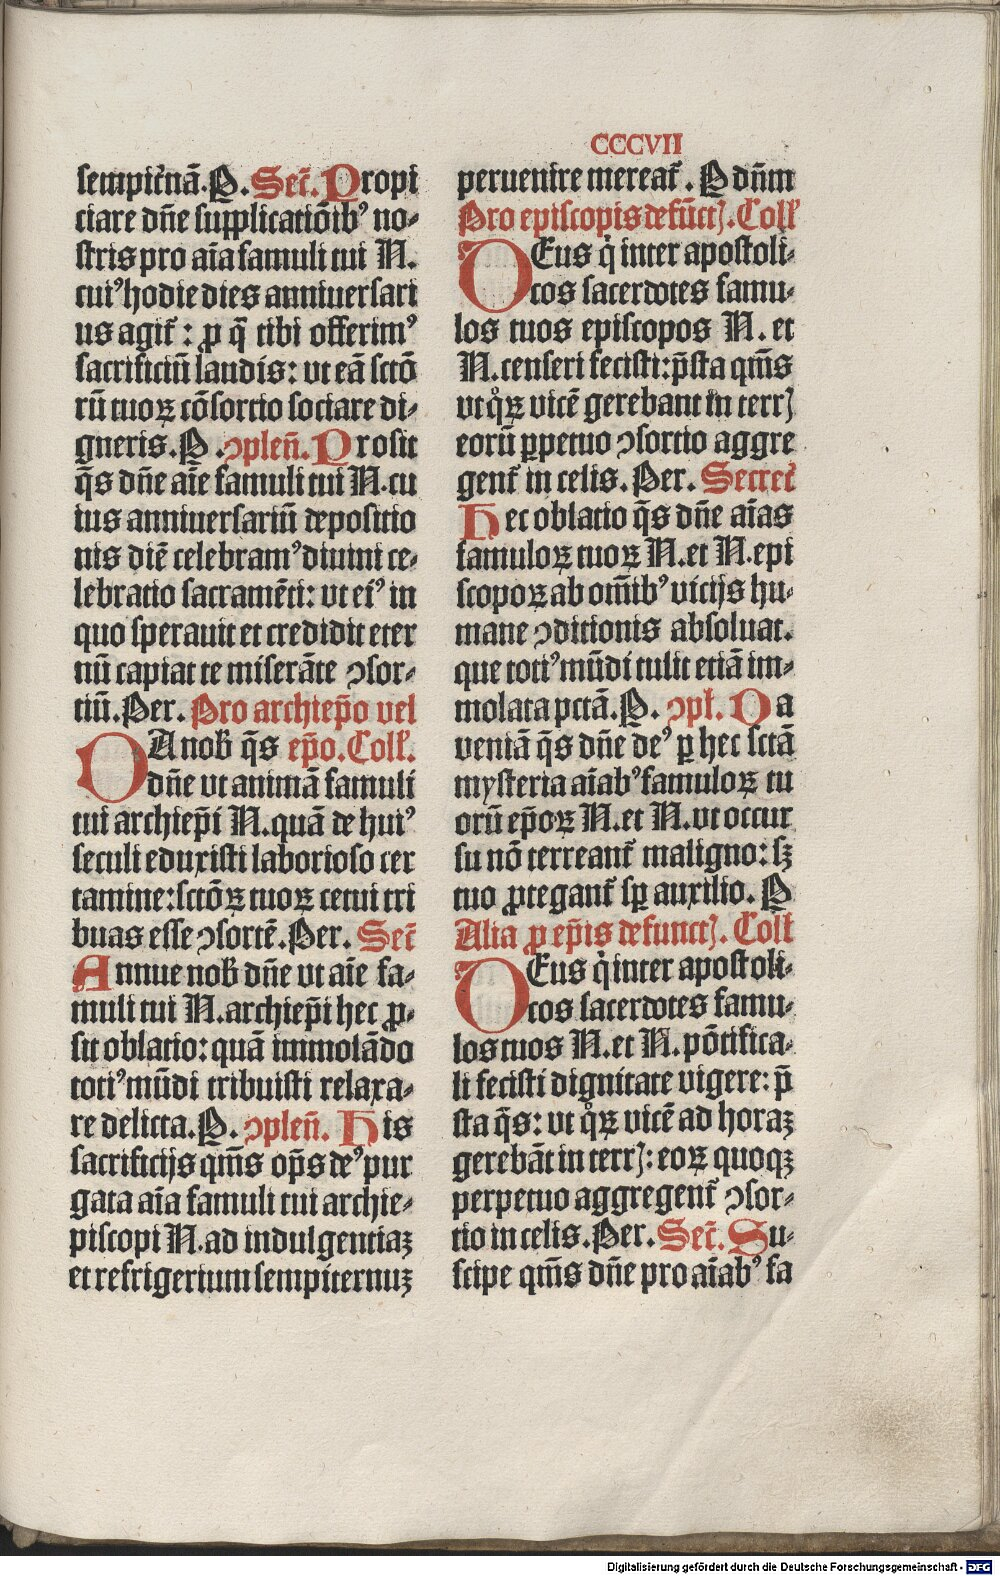 CCCVII
sempit᷑nã. P. Sec᷑. Propi
ciare dñe supplicatiõib⁹ no⸗
stris pro aĩa famuli tui N.
cui⁹ hodie dies anniuersari
us agit᷑: ꝓ q̃ tibi offerim⁹
sacrificiũ laudis: vt eã sctõ
rũ tuoꝝ cõsortio sociare di⸗
gneris. P. ꝯpleñ. Prosit
q̃s dñe aĩe famuli tui N. cu
ius anniuersariũ depositio
nis diẽ celebram⁹ diuini ce⸗
lebratio sacramẽti: vt ei⁹ in
quo sperauit et credidit eter
nũ capiat te miserãte ꝯsor⸗
tiũ. Per. Pro archiep̃o vel
DA nob᷑ q̃s ep̃o. Coll᷑.
dñe vt animã famuli
tui archiep̃i N. quã de hui⁹
seculi eduxisti laborioso cer
tamine: sctõꝝ tuoꝝ cetui tri
buas esse ꝯsortẽ. Per. Sec᷑
Annue nob᷑ dñe vt aĩe fa⸗
muli tui N. archiep̃i hec ꝓ⸗
sit oblatio: quã immolãdo
toti⁹ mũdi tribuisti relaxa⸗
re delicta. P. ꝯpleñ. His
sacrificijs qm̃s op̃s de⁹ pur
gata aĩa famuli tui archie⸗
piscopi N. ad indulgentiaꝫ
et refrigerium sempiternuꝫ
peruenire mereat᷑. P dñm
Pro episcopis defũctꝭ. Coll᷑
DEus q̇ inter apostoli⸗
cos sacerdotes famu⸗
los tuos episcopos N. et
N. censeri fecisti: p̃sta qm̃s
vt qͦꝝ vicẽ gerebant in terrꝭ
eorũ ꝑpetuo ꝯsortio aggre
gent᷑ in celis. Per. Secret᷑
Hec oblatio q̃s dñe aĩas
famuloꝝ tuoꝝ N. et N. epi
scopoꝝ ab om̃ib⁹ vicijs hu⸗
mane ꝯditionis absoluat.
que toti⁹ mũdi tulit etiã im⸗
molata pctã. P. ꝯpl᷑. Da
veniã q̃s dñe de⁹ ꝑ hec sctã
mysteria aĩab⁹ famuloꝝ tu
orũ ep̃oꝝ N. et N. vt occur
su nõ terreant᷑ maligno: sꝫ
tuo ꝓtegant᷑ sꝑ auxilio. P
Alia ꝓ ep̃is defunctꝭ. Coll᷑
DEus q̇ inter apostoli⸗
cos sacerdotes famu⸗
los tuos N. et N. põtifica⸗
li fecisti dignitate vigere: p̃
sta q̃s: vt qͦꝝ vicẽ ad horaꝫ
gerebãt in terrꝭ: eoꝝ quoqꝫ
perpetuo aggregent᷑ ꝯsor⸗
tio in celis. Per. Sec᷑. Su⸗
scipe qm̃s dñe pro aĩab⁹ fa
Digitalisierung gefördert durch die Deutsche Forschungsgemeinschaft - DFG